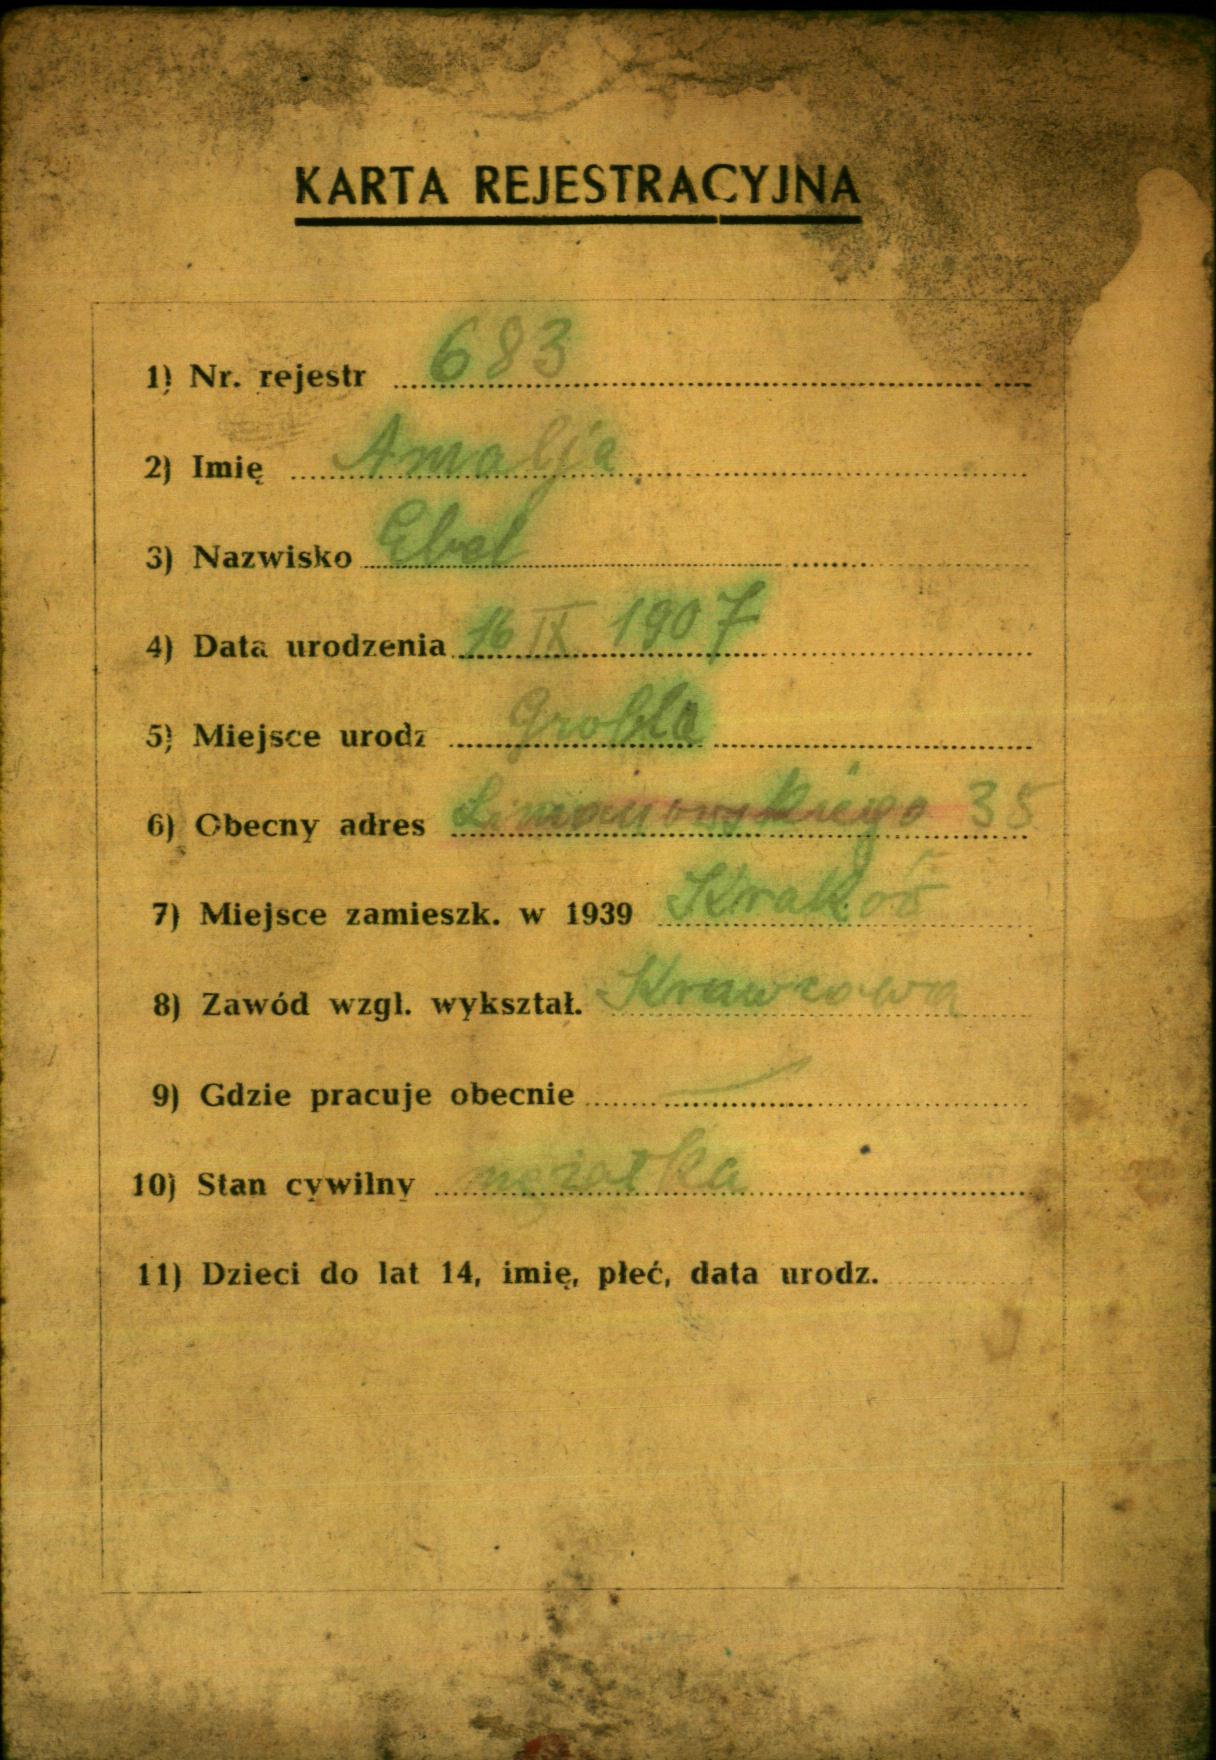 KARTA REJESTRACYJNA
1) Nr. rejestr 683
2) Imię Amalja
3) Nazwisko Ebel
4) Data urodzenia 16 IX 1907
5) Miejsce urodz Grobla
6) Obecny adres Limanowskiego 35
7) Miejsce zamieszk. w 1939
8) Zawód wzgl. wykształ. Krawcowa
9) Gdzie pracuje obecnie —
10) Stan cywilny mężatka
11) Dzieci do lat 14, imię, płeć, data urodz.